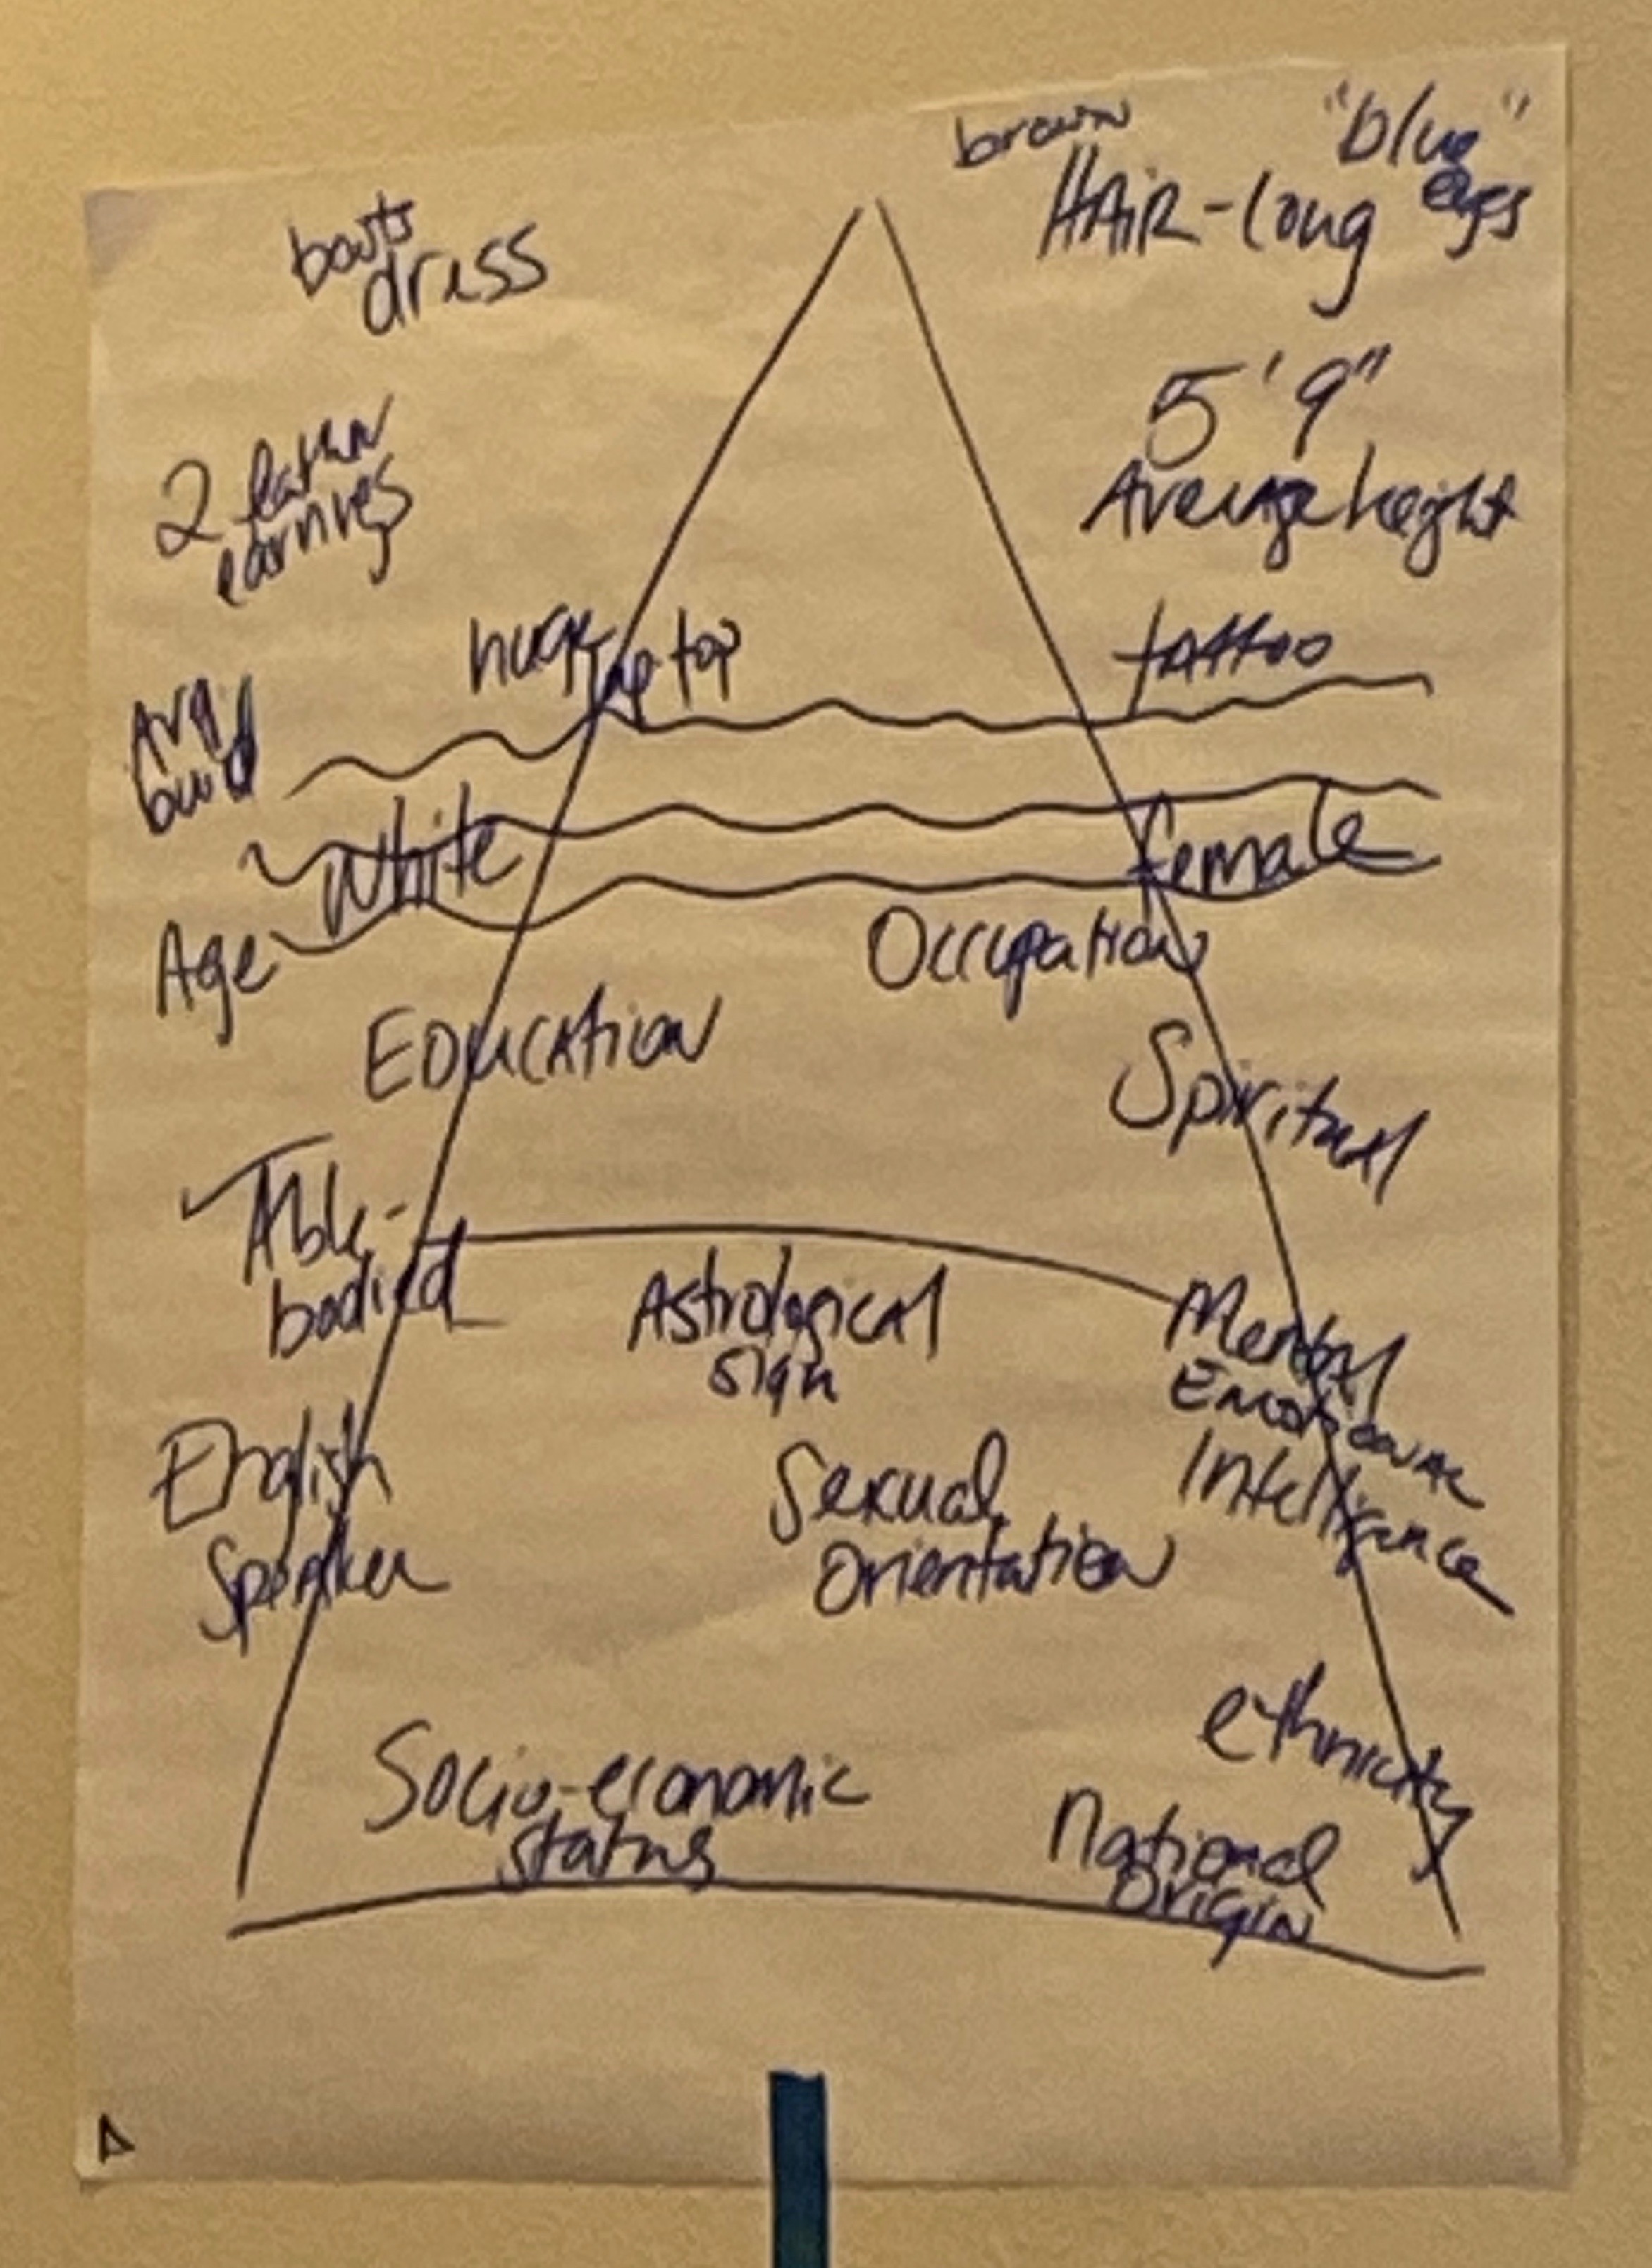 brown "blue"
HAIR-long eyes
boots
dress
5'9"
Average height
2
huge top
tattoo
Avg
build
White
female
Age
Occupation
EDUCATION
Spiritual
Able-
bodied
Astrological
sign
Mental
Emotional
Intelligence
English
Speaker
Sexual
Orientation
ethnicity
Socio-economic
status
National
Origin